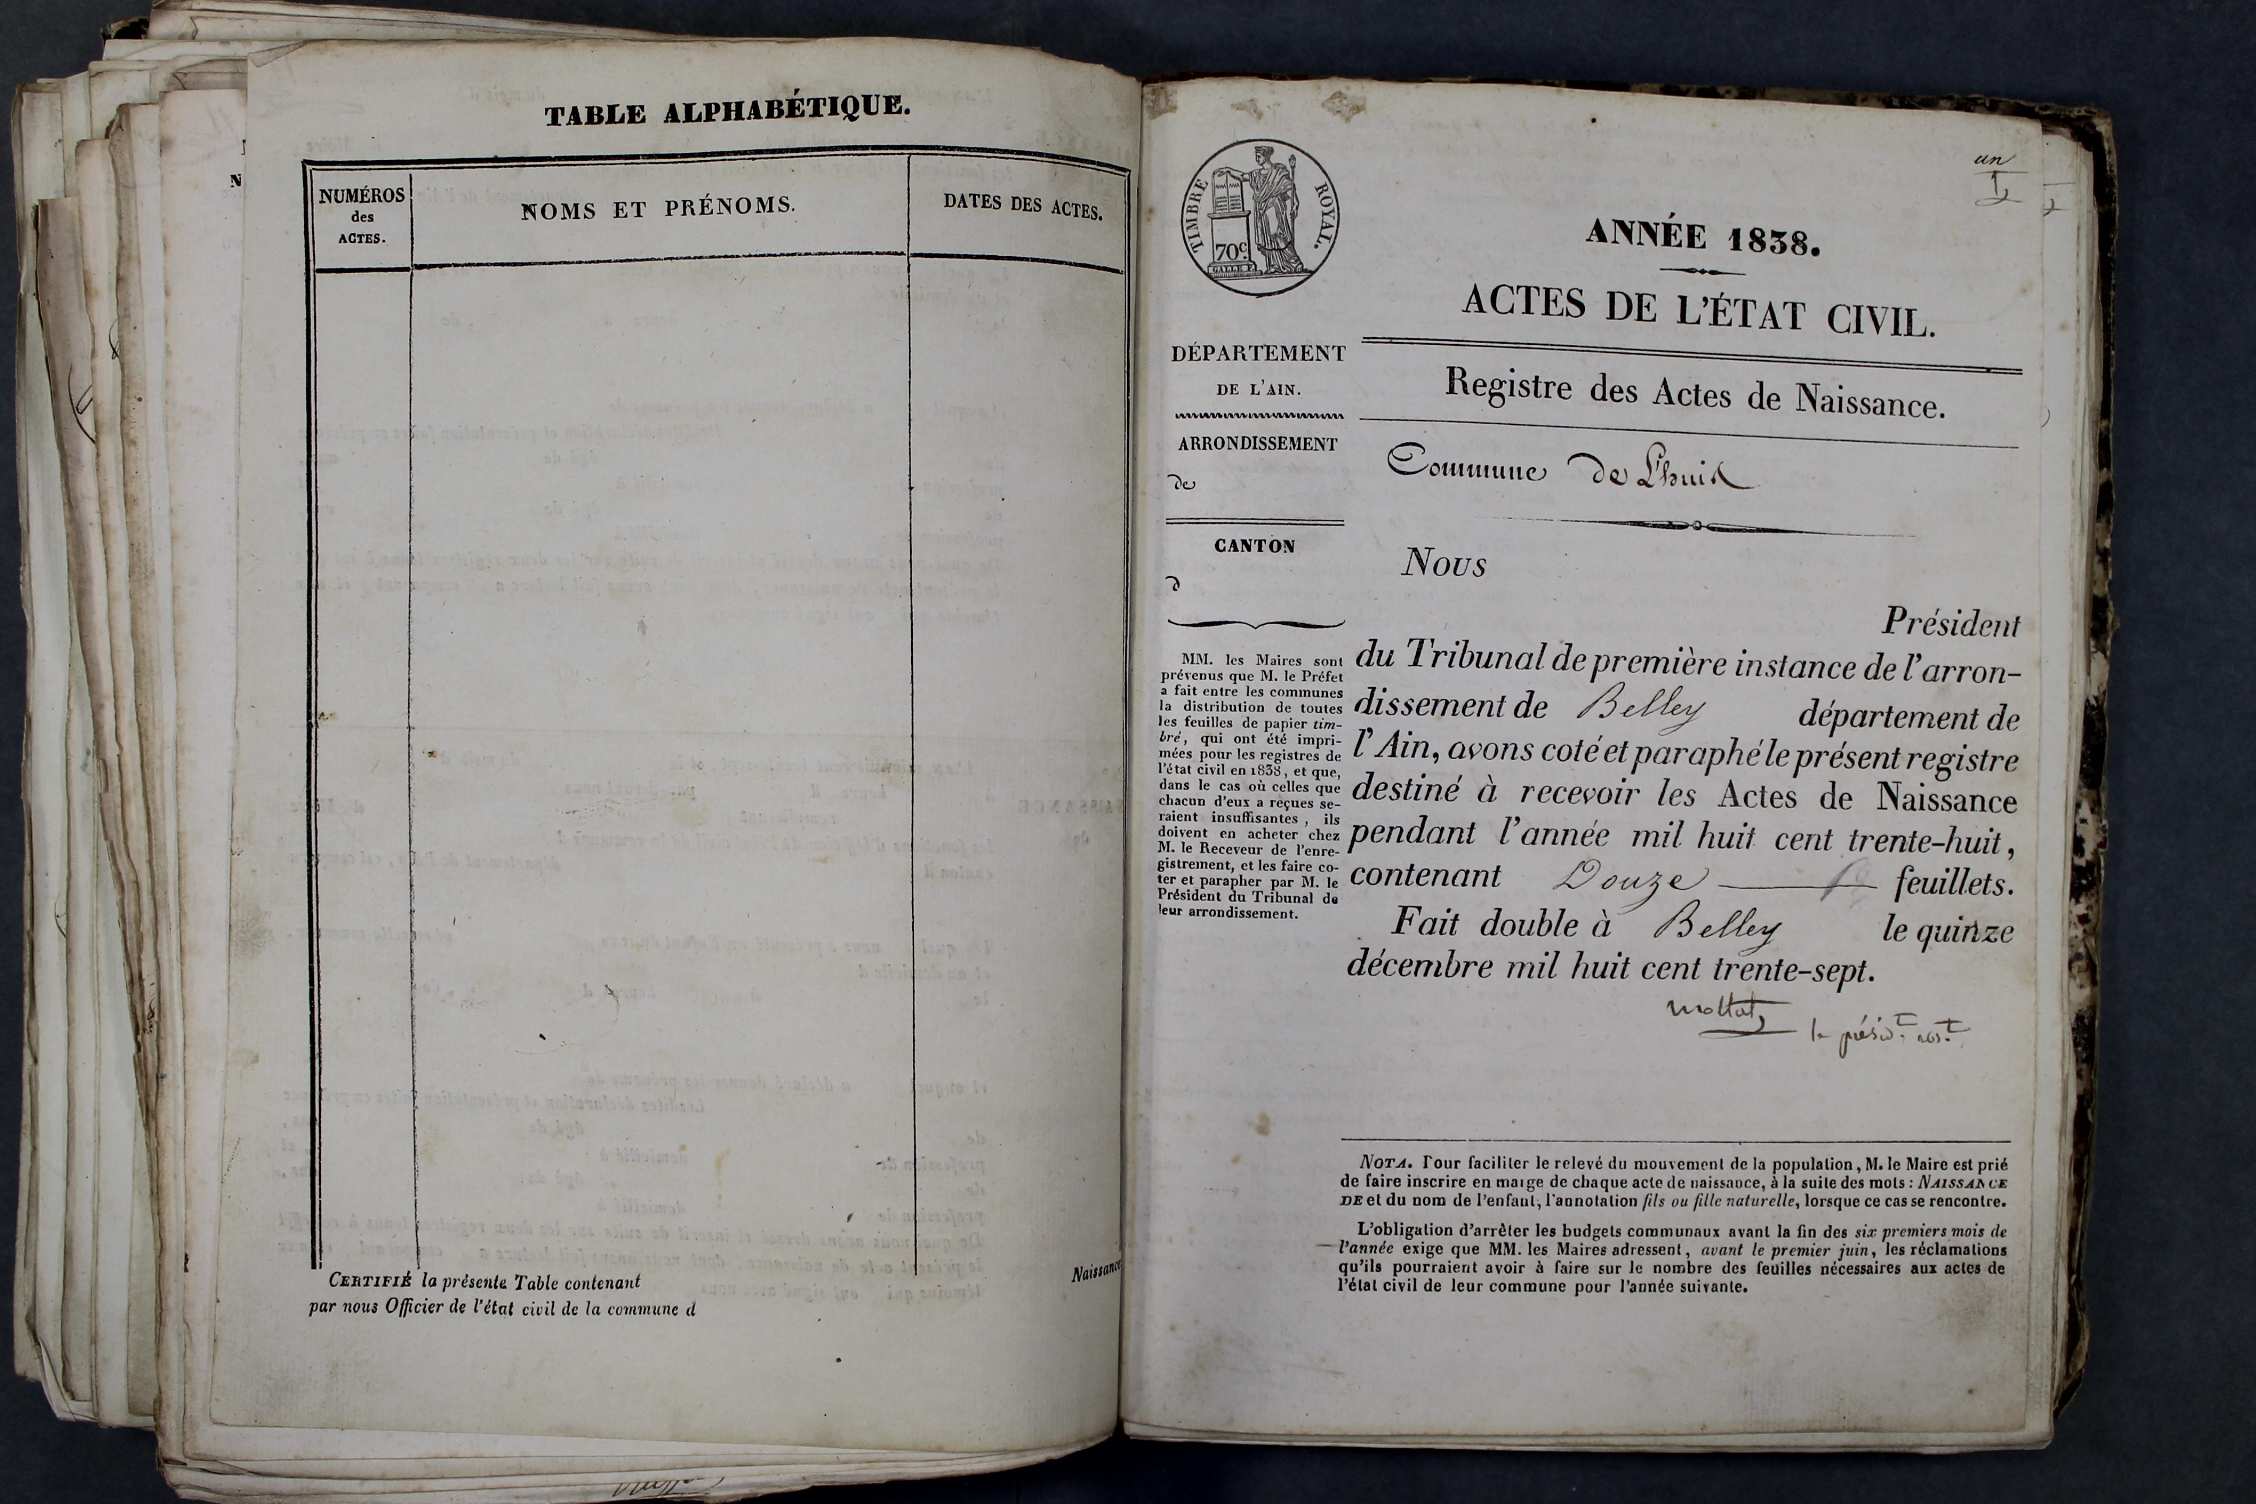 TABLE ALPHABÉTIQUE.
NUMÉROS
des
ACTES.
NOMS ET PRÉNOMS.
DATES DES ACTES.
CERTIFIÉ la présente Table contenant
par nous Officier de l'état civil de la commune d
Naissance
un
1
TIMBRE ROYAL.
70c.
ANNÉE 1838.
ACTES DE L'ÉTAT CIVIL.
DÉPARTEMENT
DE L'AIN.
ARRONDISSEMENT
de
CANTON
d
MM. les Maires sont
prévenus que M. le Préfet
a fait entre les communes
la distribution de toutes
les feuilles de papier tim-
bré, qui ont été impri-
mées pour les registres de
l'état civil en 1838, et que,
dans le cas où celles que
chacun d'eux a reçues se-
raient insuffisantes, ils
doivent en acheter chez
M. le Receveur de l'enre-
gistrement, et les faire co-
ter et parapher par M. le
Président du Tribunal de
leur arrondissement.
Registre des Actes de Naissance.
Commune de Lhuis
Nous
Président
du Tribunal de première instance de l'arron-
dissement de Belley département de
l'Ain, avons coté et paraphé le présent registre
destiné à recevoir les Actes de Naissance
pendant l'année mil huit cent trente-huit,
contenant Douze feuillets.
Fait double à Belley le quinze
décembre mil huit cent trente-sept.
NOTA. Pour faciliter le relevé du mouvement de la population, M. le Maire est prié
de faire inscrire en marge de chaque acte de naissance, à la suite des mots : NAISSANCE
DE et du nom de l'enfant, l'annotation fils ou fille naturelle, lorsque ce cas se rencontre.
L'obligation d'arrêter les budgets communaux avant la fin des six premiers mois de
l'année exige que MM. les Maires adressent, avant le premier juin, les réclamations
qu'ils pourraient avoir à faire sur le nombre des feuilles nécessaires aux actes de
l'état civil de leur commune pour l'année suivante.